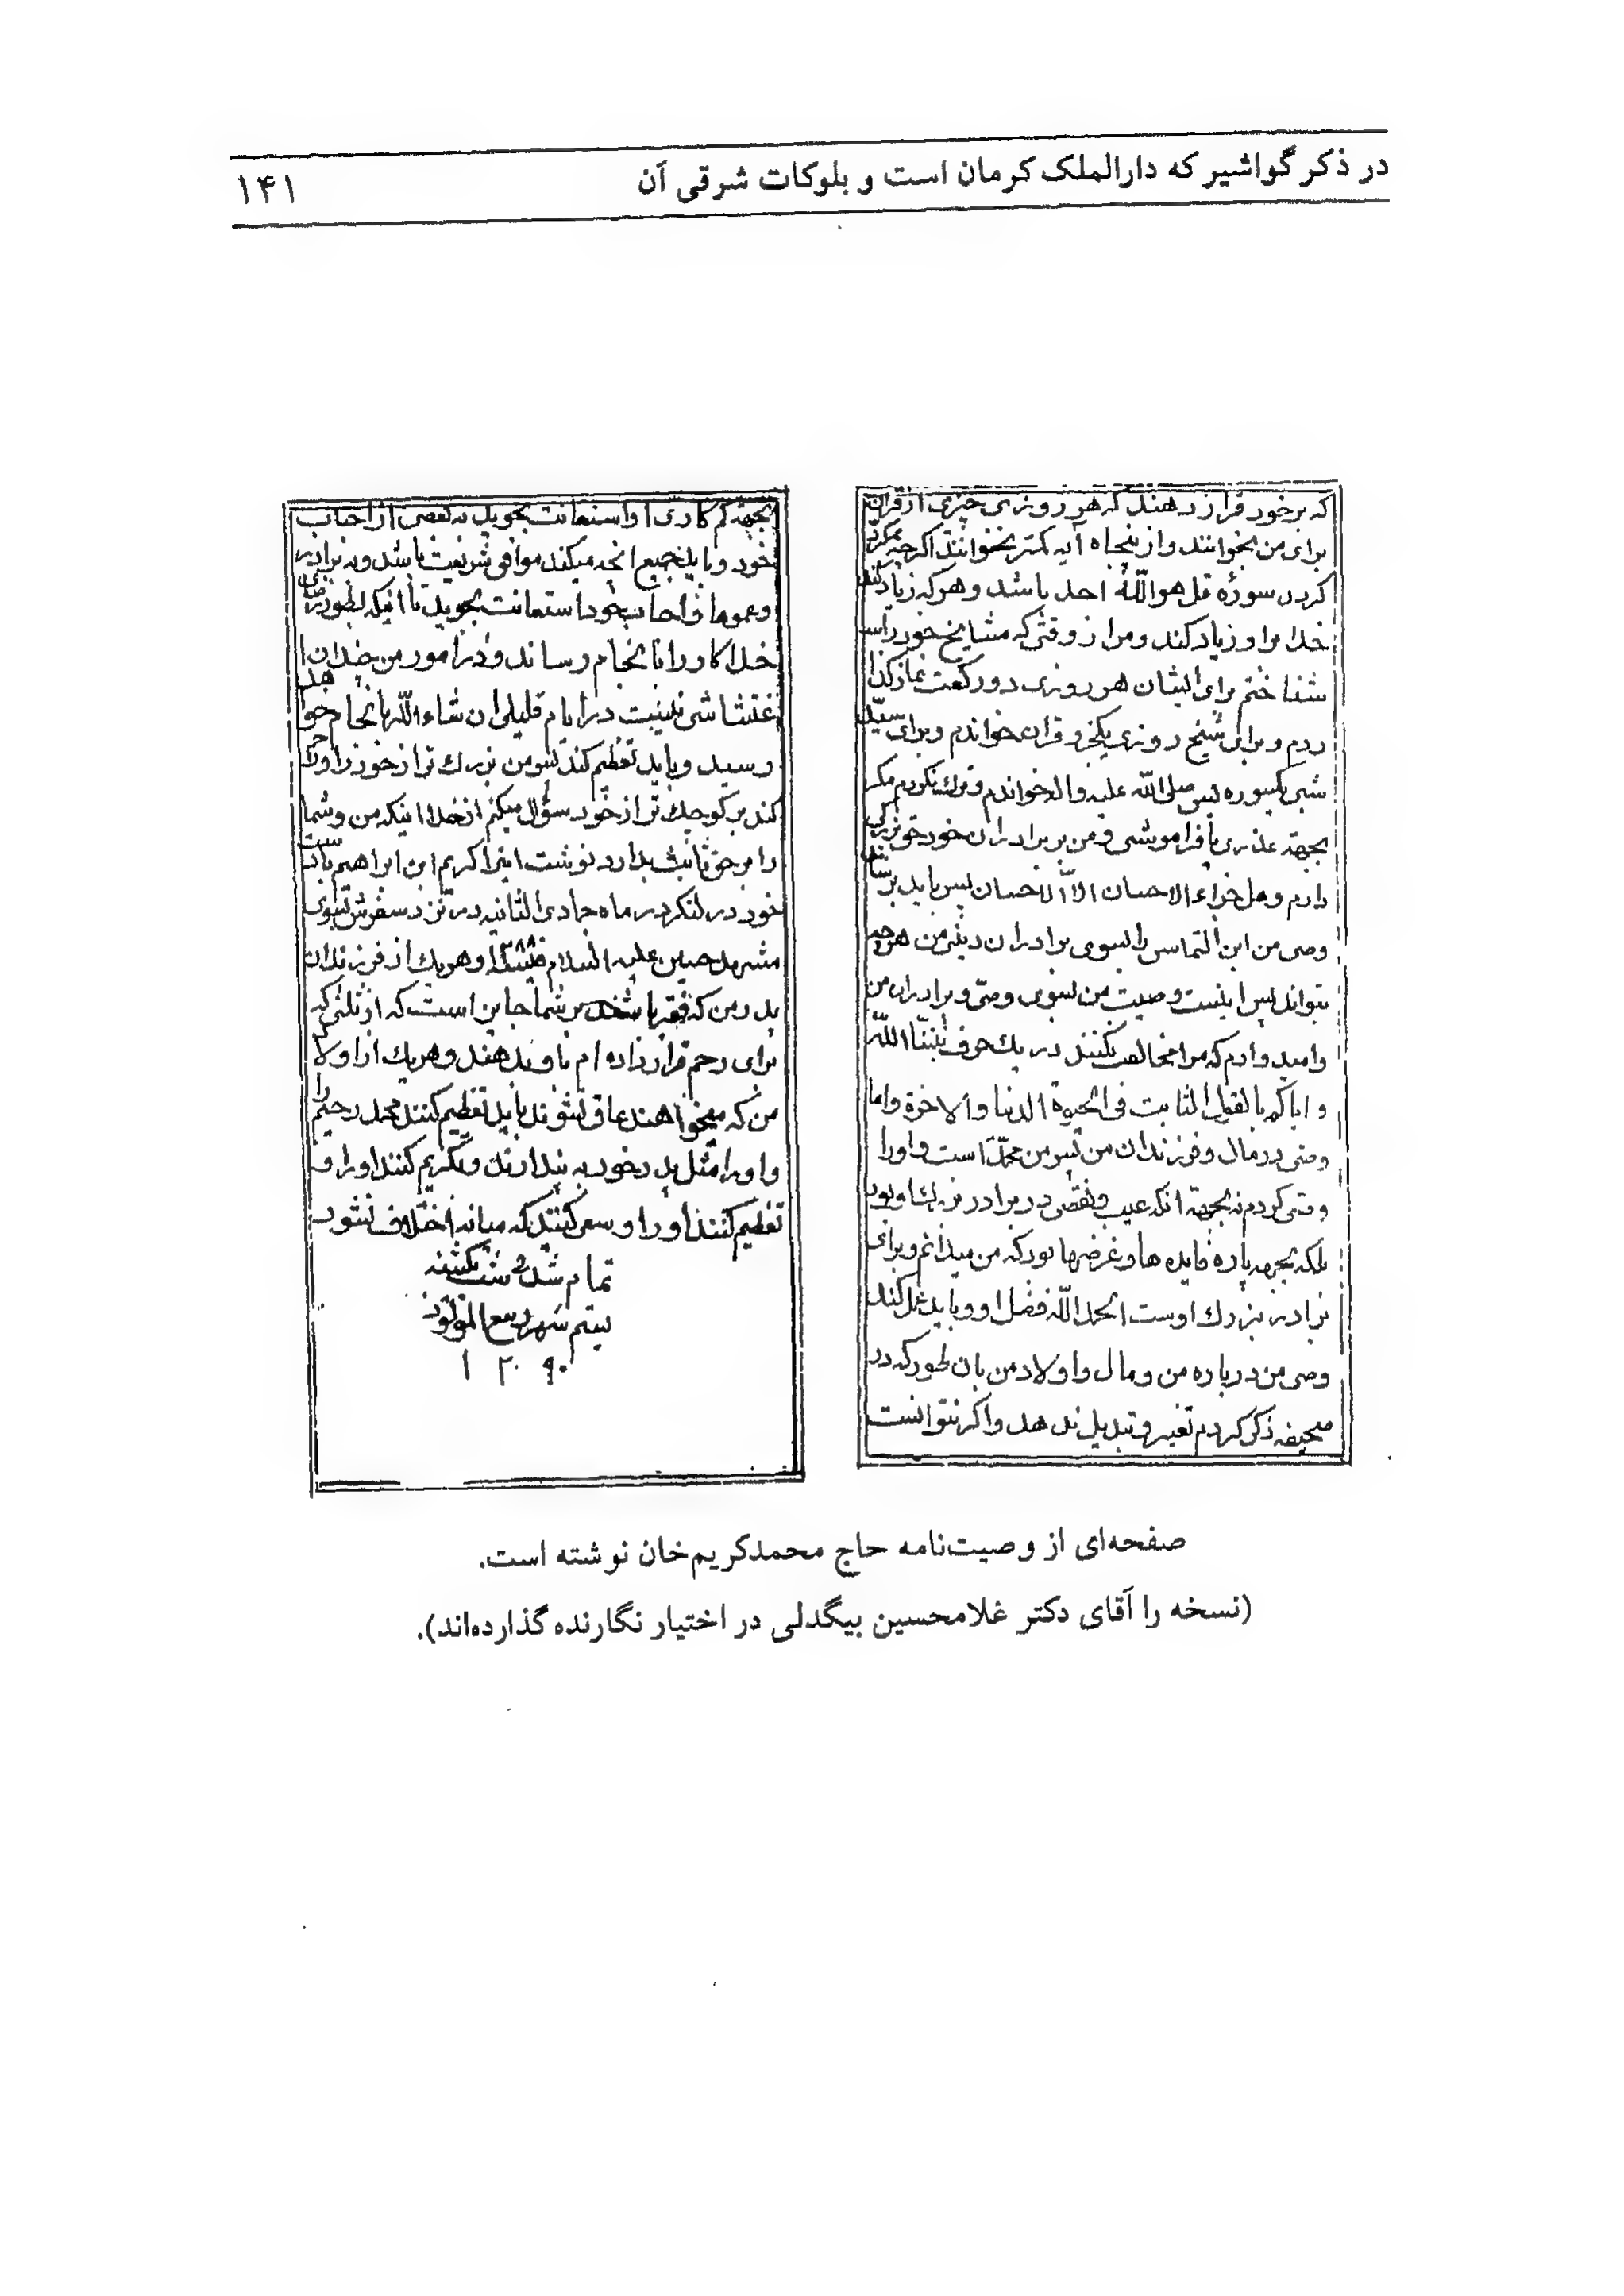 در ذکر گواشیر که دارالملک کرمان است و بلوکات شرقی آن
۱۴۱
که بر خود قرار دهند که هر روزی چیزی از قرآن
برای من بخوانند و از پنجاه آیه کمتر نخوانند اگرچه بمکرر
کردن سورۀ قل هو اللّه احد باشد و هرکه زیاد کند
خدا برا و زیاد کند و مرا از وقتی که مشایخ خود را
شناختم برای ایشان هر روزی دو رکعت نماز گذا
ردم و برای شیخ روزی یکجزو قران خواندم و برای سیّد
شبی یکسوره یس صلی اللّه علیه و اله خواندم و ترک نکردم مگر
بجهته عذری یا فراموشی و من بر برادران خود حق بزرگی
دارم و هل جزاء الاحسان الاّ الاحسان پس باید برساند
وصی من این التماس را بسوی برادران دینی من هر چه
بتواند پس اینست وصیت من بسوی وصیّ و برادران من
و امید وارم که مرا مخالفت نکنند در یک حرف ثبّتنا اللّه
و ایاکم بالقول الثابت فی الحیوة الدنیا و الاخرة و اما
وصی در مال و فرزندان من پسر من محمّد است و او را
وصی کردم نه بجهته انکه عیب و نقصی در برادر بزرک او بود
بلکه بجهه پاره فایده ها و غرضها بود که من میدانم و برای
برادر بزرک اوست الحمد اللّه فضل او و باید عمل کند
وصی من درباره من و مال و اولاد من بان طور که در
صحیفه ذکر کردم تغییر و تبدیل ندهد و اگر نتوانست
بجهته کم کاری او استعانت بجوید به بعضی از احباب
خود و باید جمیع انچه میکند موافق شریعت باشد و به برادر
و عموها و احباب خود استعانت بجوید تا اینکه بطور رضای
خدا کار را بانجام رساند و در امور من چندان ا
غتشاشی نیست در ایام قلیلی ان شاء اللّه بانجام خواهد
رسید و باید تعظیم کند پسر من بزرک تر از خود را و رحم
کند بر کوچک تر از خود سؤال میکنم از خدا اینکه من و شما
را بر حق ثابت بدارد نوشت اینرا کریم ابن ابراهیم بدست
خود در لنکر در ماه جمادی الثانیه در نزد سفرش بسوی
مشهد حسین علیه السلام و هریک از فرزندان
پدر من که فقیر باشند بر شما جایز است که از ثلثی که
برای رحم قرار داده ام باو بدهند و هریک از اولاد
من که میخواهند عاق نشوند باید تعظیم کنند محمد رحیم را
و او را مثل پدر خود به پندارند و تکریم کنند او را و
تعظیم کنند او را و سعی کنند که میانه اختلاف نشود
تمام شد شب یکشنبه
بیتم شهر ربیع المولود
۱۲۹۰
صفحه‌ای از وصیت‌نامه حاج محمدکریم‌خان نوشته است.
(نسخه را آقای دکتر غلامحسین بیگدلی در اختیار نگارنده گذارده‌اند).